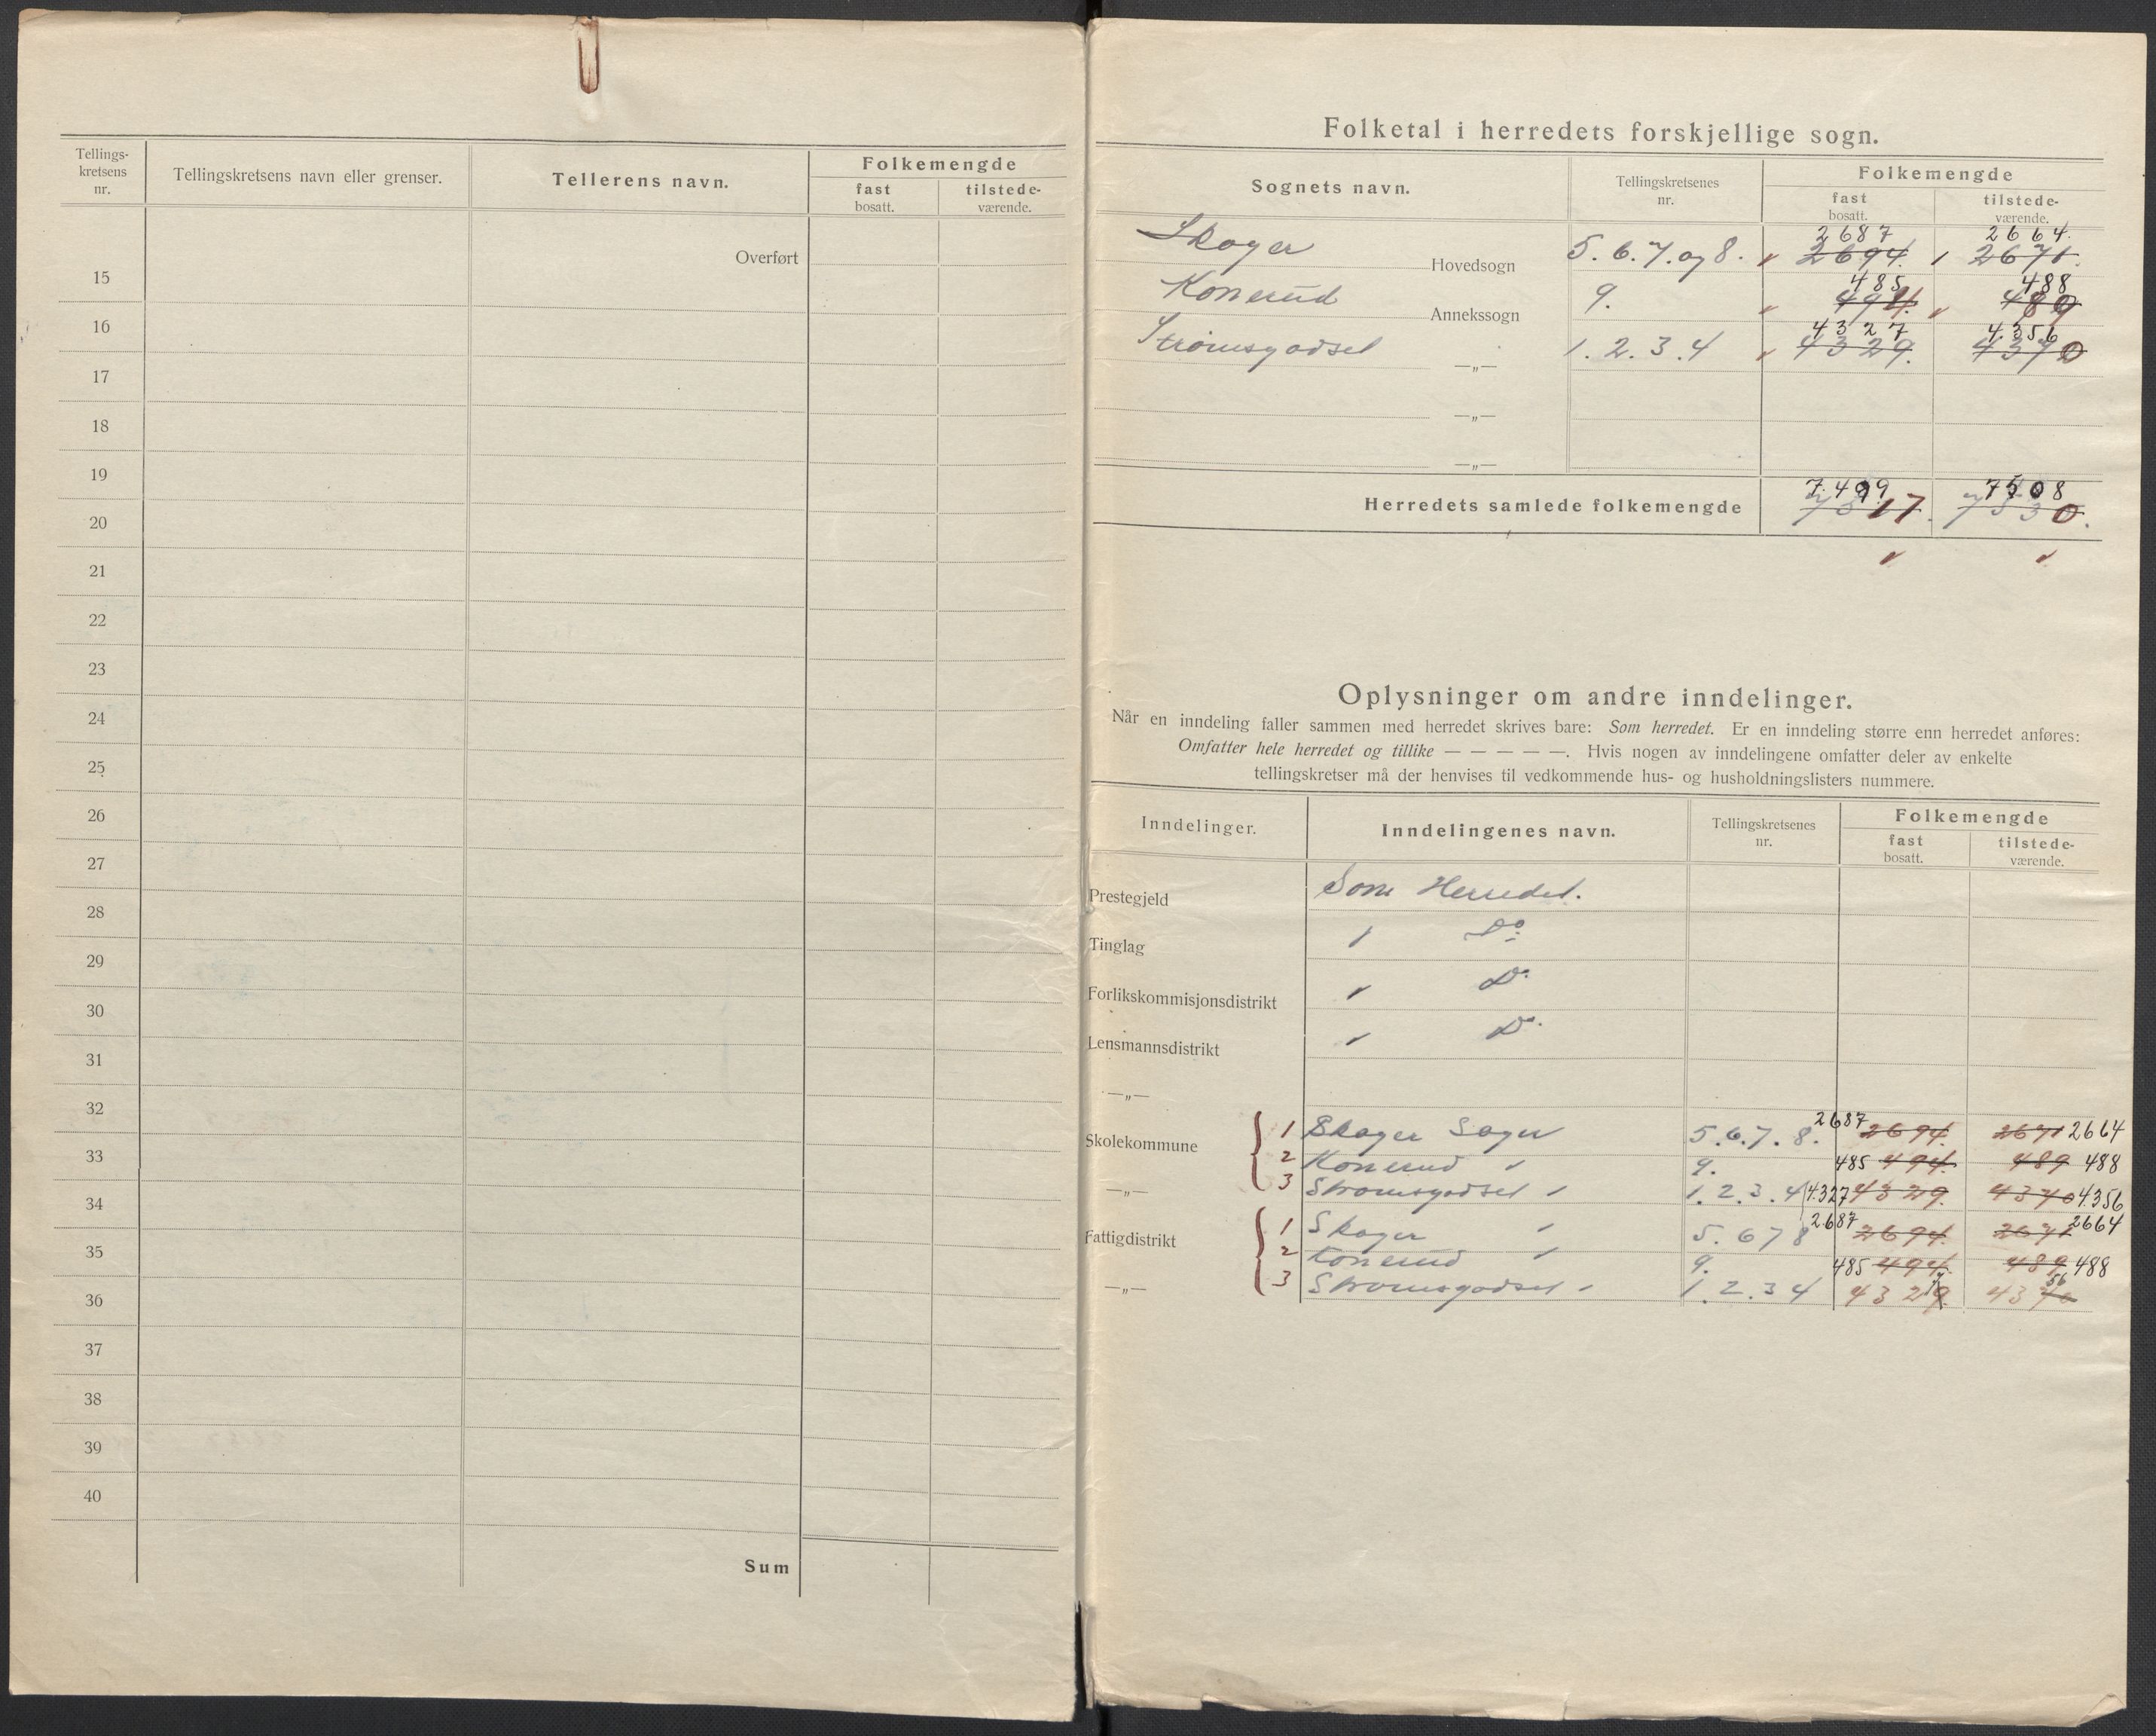 Tellings-
kretsens
nr.
Tellingskretsens navn eller grenser.
Tellerens navn.
Folkemengde
fast
bosatt.
tilstede-
værende.
Overført
15
16
17
18
19
20
21
22
23
24
25
26
27
28
29
30
31
32
33
34
35
36
37
38
39
40
Sum
Folketal i herredets forskjellige sogn.
Sognets navn.
Tellingskretsenes
nr.
Folkemengde
fast
bosatt.
tilstede-
værende.
2687 2664.
Skoger Hovedsogn 5. 6. 7. og 8. 2694. 2671.
485 488
Konerud Annekssogn 9. 494. 489
4327 4.356
Strømsgodset —„— 1. 2. 3. 4 4329. 4370
—„—
—„—
7.499 7508
Herredets samlede folkemengde 7517. 7530.
Oplysninger om andre inndelinger.
Når en inndeling faller sammen med herredet skrives bare: Som herredet. Er en inndeling større enn herredet anføres:
Omfatter hele herredet og tillike — — — — —. Hvis nogen av inndelingene omfatter deler av enkelte
tellingskretser må der henvises til vedkommende hus- og husholdningslisters nummere.
Inndelinger.
Inndelingenes navn.
Tellingskretsenes
nr.
Folkemengde
fast
bosatt.
tilstede-
værende.
Prestegjeld Som Herredet.
Tinglag Do
Forlikskommisjonsdistrikt Do
Lensmannsdistrikt Do
—„—
Skolekommune 1 Skoger Sogn 5. 6. 7. 8. 2687 2694. 2671 2664
2 Konerud " 9. 485 494. 489 488
—„— 3 Strømsgodset " 1. 2. 3. 4 4327 4329. 4370 4356
Fattigdistrikt 1 Skoger " 5. 6 7 8 2687 2694. 2671 2664
2 Konerud " 9. 485 494. 489 488
—„— 3 Strømsgodset " 1. 2. 3 4 4329. 4370 56